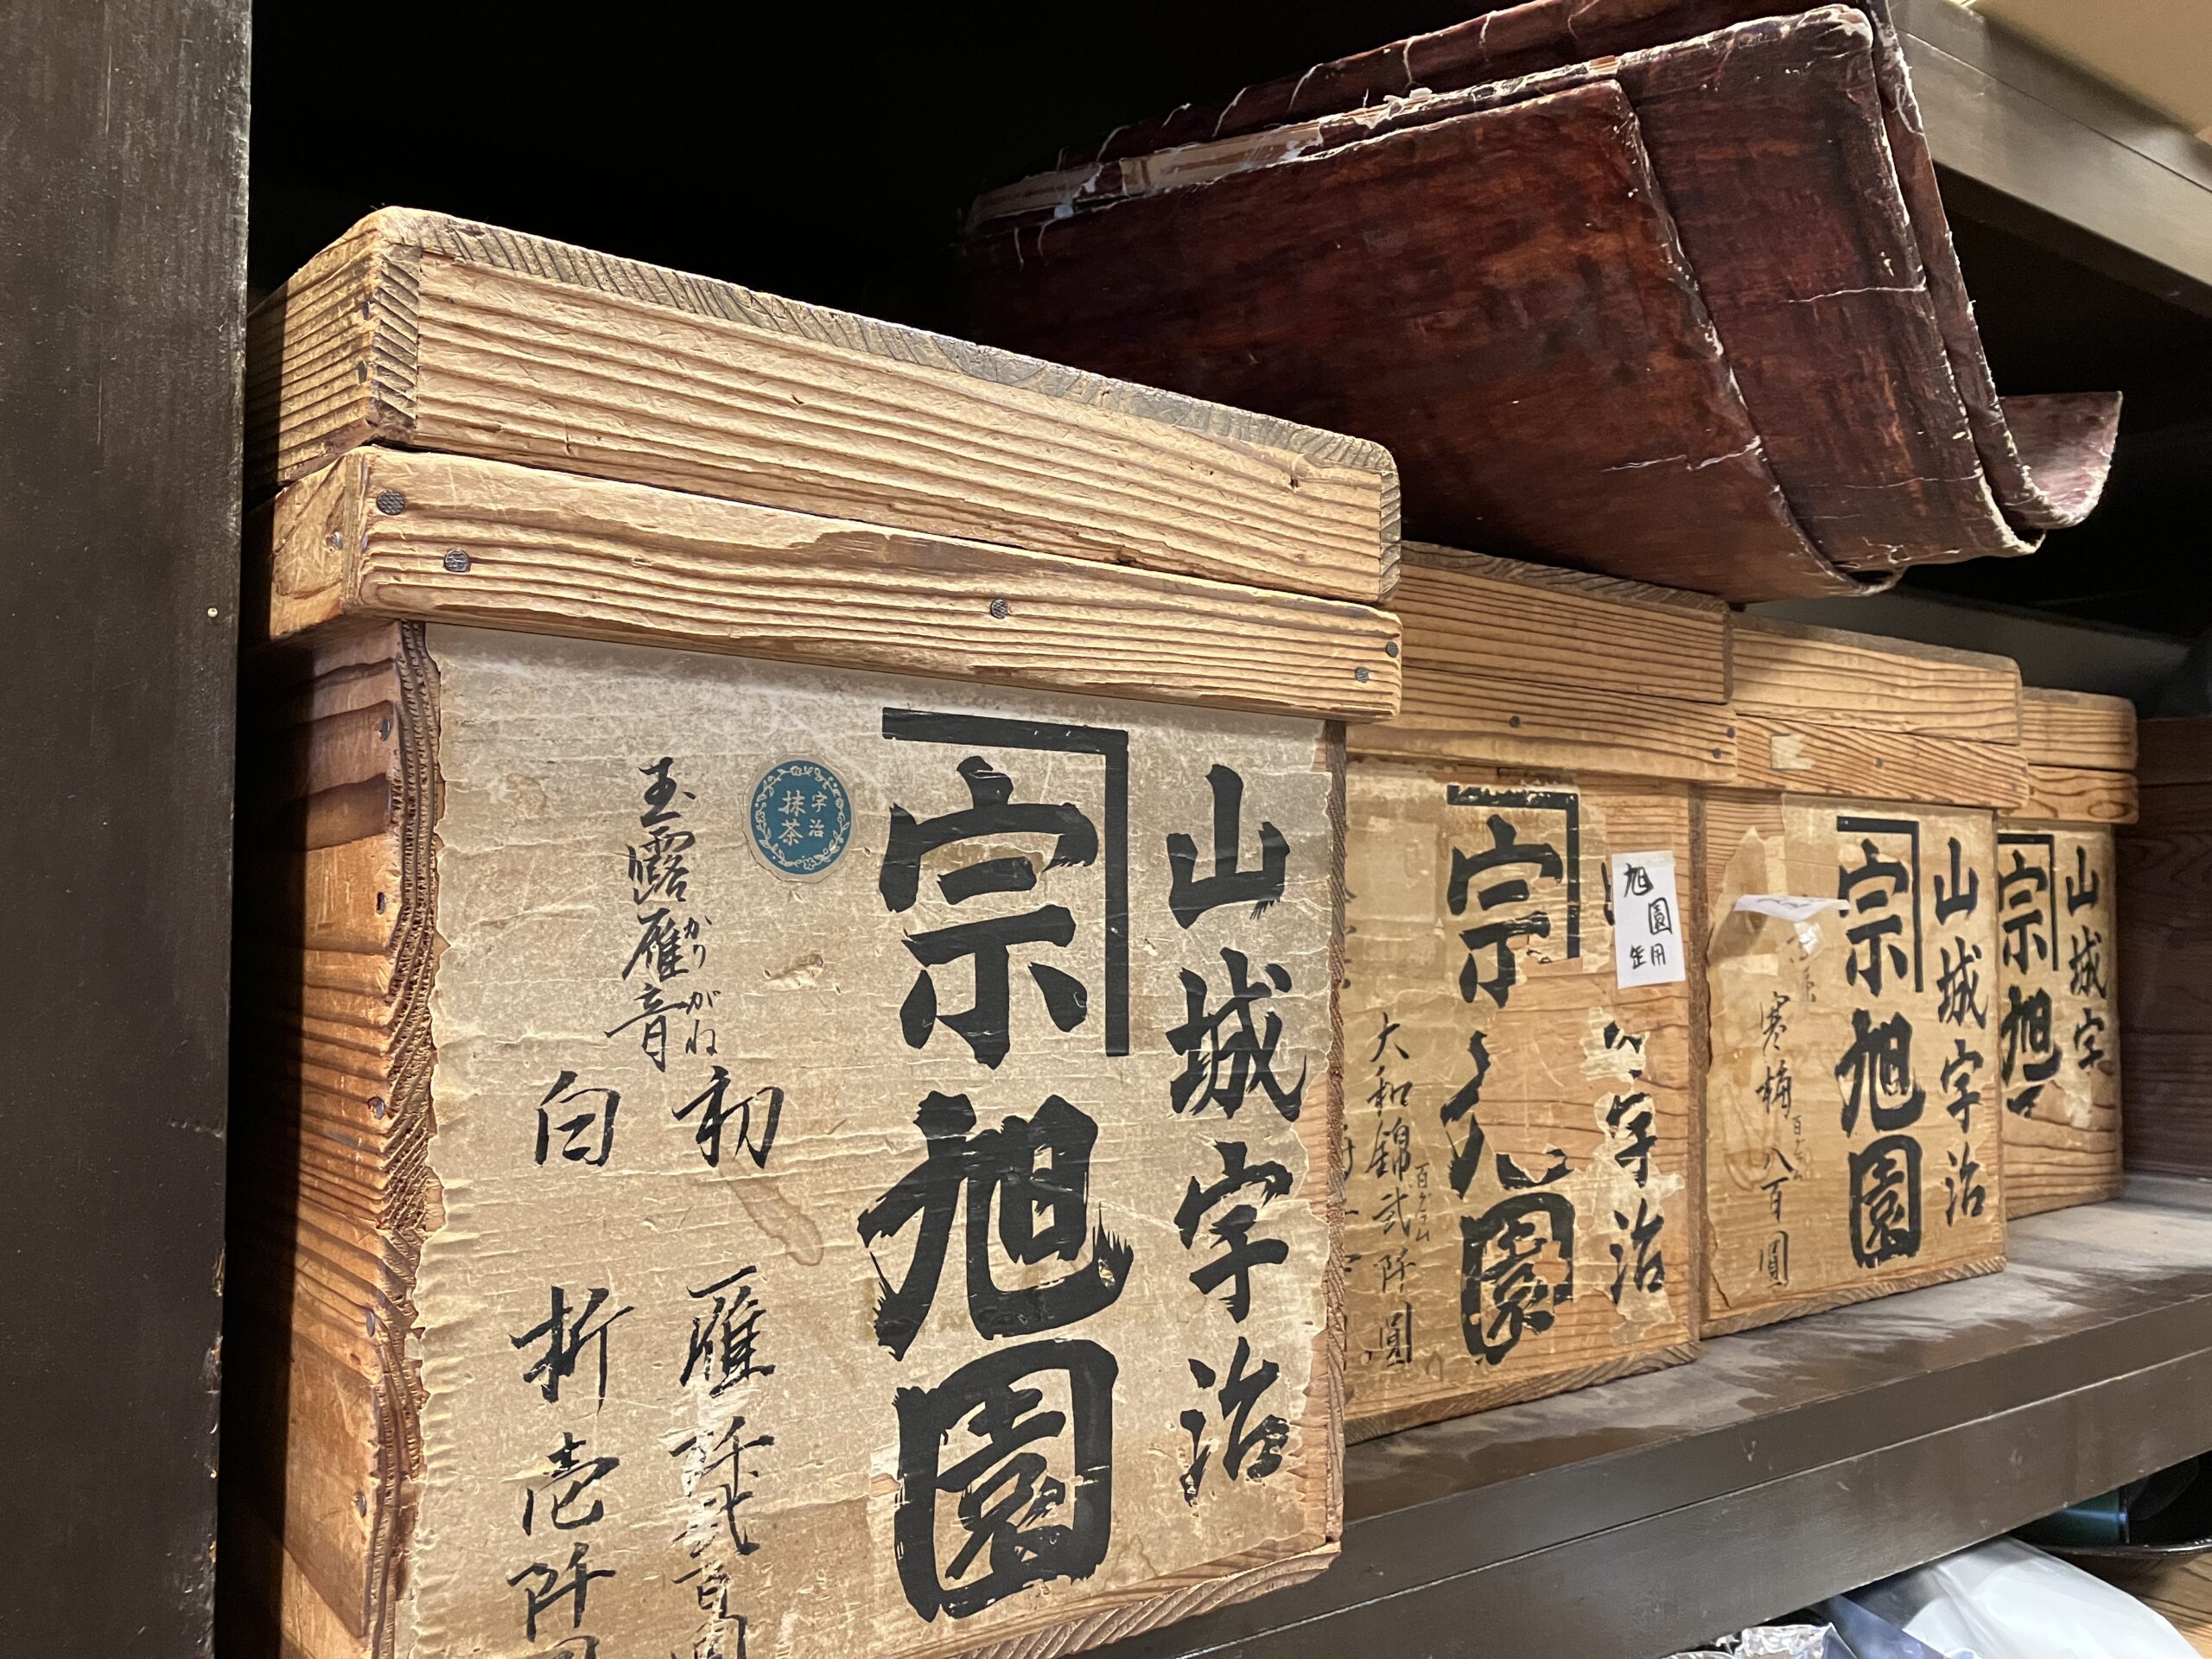 山城宇治
宗旭園
宇治
抹茶
玉露雁音
かりがね
初雁阡弐百圓
白折壱阡
旭園
缶用
宇治
宗
園
大和錦弐阡圓
百グラム
山城宇治
宗旭園
寒梅八百圓
百グラム
山城宇
宗旭